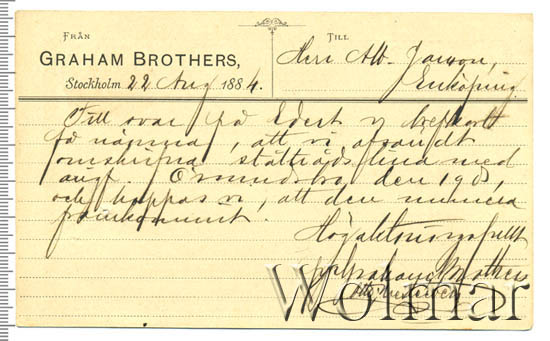 FRÅN
GRAHAM BROTHERS,
Stockholm 22 Aug 1884.
TILL
Herr Alb. Janson,
Enköping
Till svar på Edert brefkort
få nämna, att vi afsändt
omskrifna ståltrådslina med
ångf. den 19ds,
och hoppas vi, att den numera
framkommit.
Högaktningsfullt
Graham Brothers
Wolmar